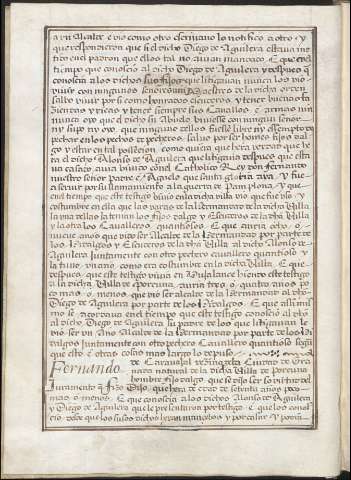 a vn Alcalde e vio como otro escriuano lo notifico a otro: y
que respondieron que si el dicho Diego de Aguilera estaua me
tido en el padron que ellos tal no auian mandado. E que en el
tiempo que conoscio al dicho Diego de Aguilera y despues q
conoscio a los dichos sus fijos que litigauan nunca los vio
viuir con ningunos señores
saluo viuir por si como honrrados escuderos y tener buenas fa
ziendas y ricas y tener siempre sus Cauallos e armas
nunca oyo que el dicho su Abuelo biuiesse con ningun señor
ny supo ny oyo que ninguno dellos fuesse libre ny essempto de
pechar en los pechos de pecheros saluo por ser homes fijos dal
go y estar en tal possession como quiera que hera verdad que he
ra el dicho Alonso de Aguilera que litigaua despues que esta
ua casado auia viuido con el Catholico Rey don Fernando
nuestro señor Padre e Aguelo que sancta gloria aya y fue
a seruir por su llamamiento a la guerra de Pamplona. Y que
en el tiempo que este testigo biuio en la dicha villa vio que fue vso y
costumbre en ella que las varas de la hermandad de la dicha Villa
la vna dellas la tenian los fijos dalgo y Escuderos de la dha Villa
y la otra los Caualleros quantiosos. E que auria ocho o
nueue años que vido ser Alcalde de la Hermandad por parte de
los Hidalgos y Escuderos de la dha Villa al dicho Alonso de
Aguilera Juntamente con otro pechero cauallero quantioso y
la tuuo vn año como era costumbre en la dicha Villa. E que
despues que este testigo viuia en Bujalance biendo este testigo
a la dicha Villa de Porcuna auria tres o quatro años po
co mas o menos que vio ser alcalde de la Hermandad al dho
Diego de Aguilera por parte de los Hidalgos. E que assi mis
mo se acordaua en el tiempo que este testigo conoscio al dho
al dicho Diego de Aguilera su padre de los que litigauan le
vio ser vn Año Alcalde de la Hermandad por parte de los Hi
dalgos Juntamente con otro pechero Cauallero quantioso segun
que esto e otras cosas mas largo lo depuso.
Fernando de Carauajal vezino de la Ciudad de Gra
nada natural de la dicha Villa de Porcuna
hombre fijo dalgo que se dijo ser so virtud del
Juramento q fizo Dijo que hera de edad de setenta años poco
mas o menos. E que conoscia a los dichos Alonso de Aguilera
y Diego de Aguilera que le presentaron por testigo e que los conos
cio desde que los susos dichos heran mancebos y por casar y porcuna